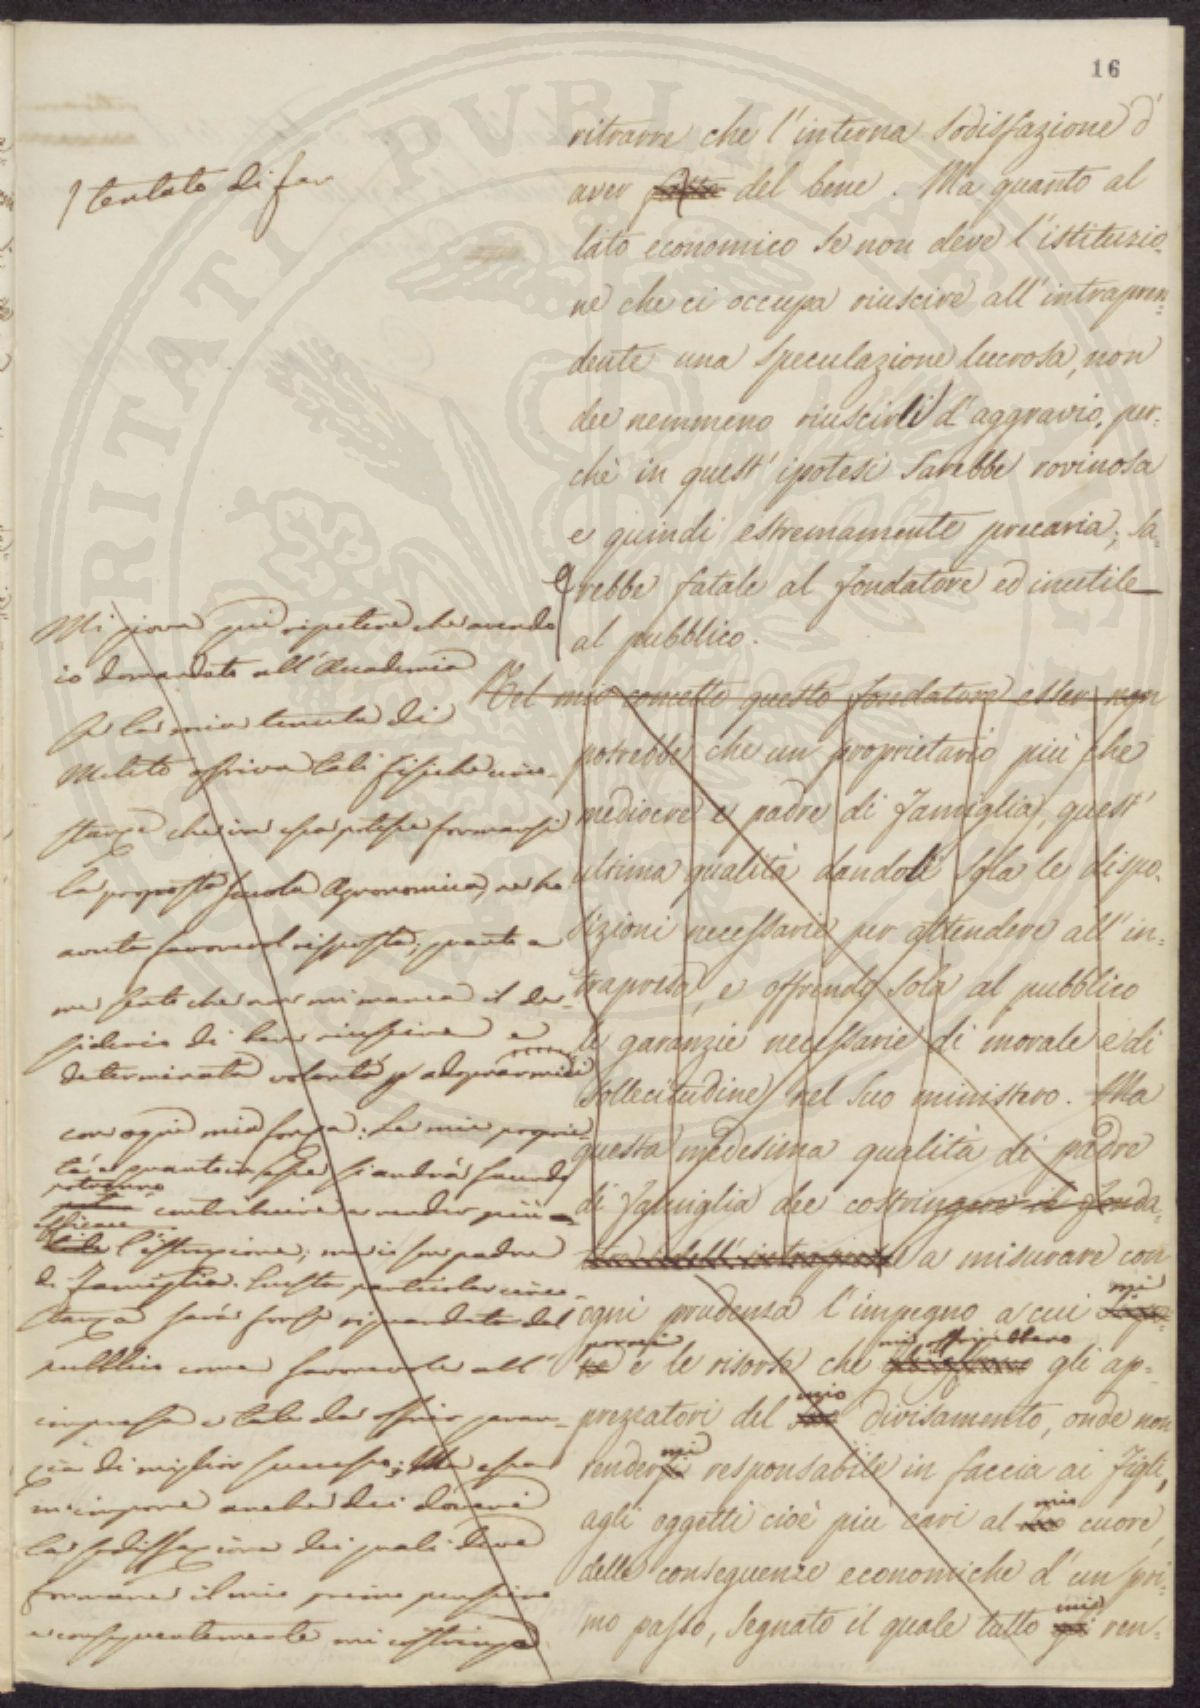 16
ritrarre che l'interna sodisfazione d'
aver fatto del bene. Ma quanto al
lato economico se non deve l'istituzio-
ne che ci occupa riuscire all'intrapren-
dente una speculazione lucrosa, non
dee nemmeno riuscirli d'aggravio, per-
chè in quest'ipotesi sarebbe rovinosa
e quindi estremamente precaria; sa-
rebbe fatale al fondatore ed inutile
al pubblico.
Nel mio concetto questo fondatore esser non
potrebbe che un proprietario più che
mediocre e padre di famiglia, quest'
ultima qualità dandoli sola le dispo-
sizioni necessarie per attendere all'in-
trapresa, e offrendo sola al pubblico
le garanzie necessarie di morale e di
sollecitudine nel suo ministero. Ma
questa medesima qualità di padre
di famiglia dee costringere il fonda-
tore dell'intrapresa a misurare con
ogni prudenza l'impegno a cui mi
pormi e le risorse che mi offrirebbero gli ap-
prezzatori del mio divisamento, onde non
rendermi responsabile in faccia ai Figli,
agli oggetti cioè più cari al mio cuore,
delle conseguenze economiche d'un pri-
mo passo, segnato il quale tutto mi ren-
/ tentato di far
Mi giova quì ripetere che avendo
io domandato all'Accademia
se la mia tenuta di
Meleto offriva tali fisiche circo-
stanze che in essa potesse formarsi
la proposta Scuola Agronomica, ne ho
avuta favorevol risposta; quanto a
me sento che non mi manca il de-
siderio di ben riuscire e
determinata volontà p adoprarmici
con ogni mia forza: Le mie proprie-
tà e quanto in esse si andrà facendo
potranno contribuire a render più
efficace l'istruzione; ma io son padre
di Famiglia. Questa particolar circo-
stanza sarà forse risguardata dal
pubblico come favorevole all'
impresa e tale da offrir garan-
zia di miglior successo; Ma essa
m'impone anche dei doveri
la sodisfazione dei quali deve
formare il mio primo pensiero
e conseguentemente mi costringe